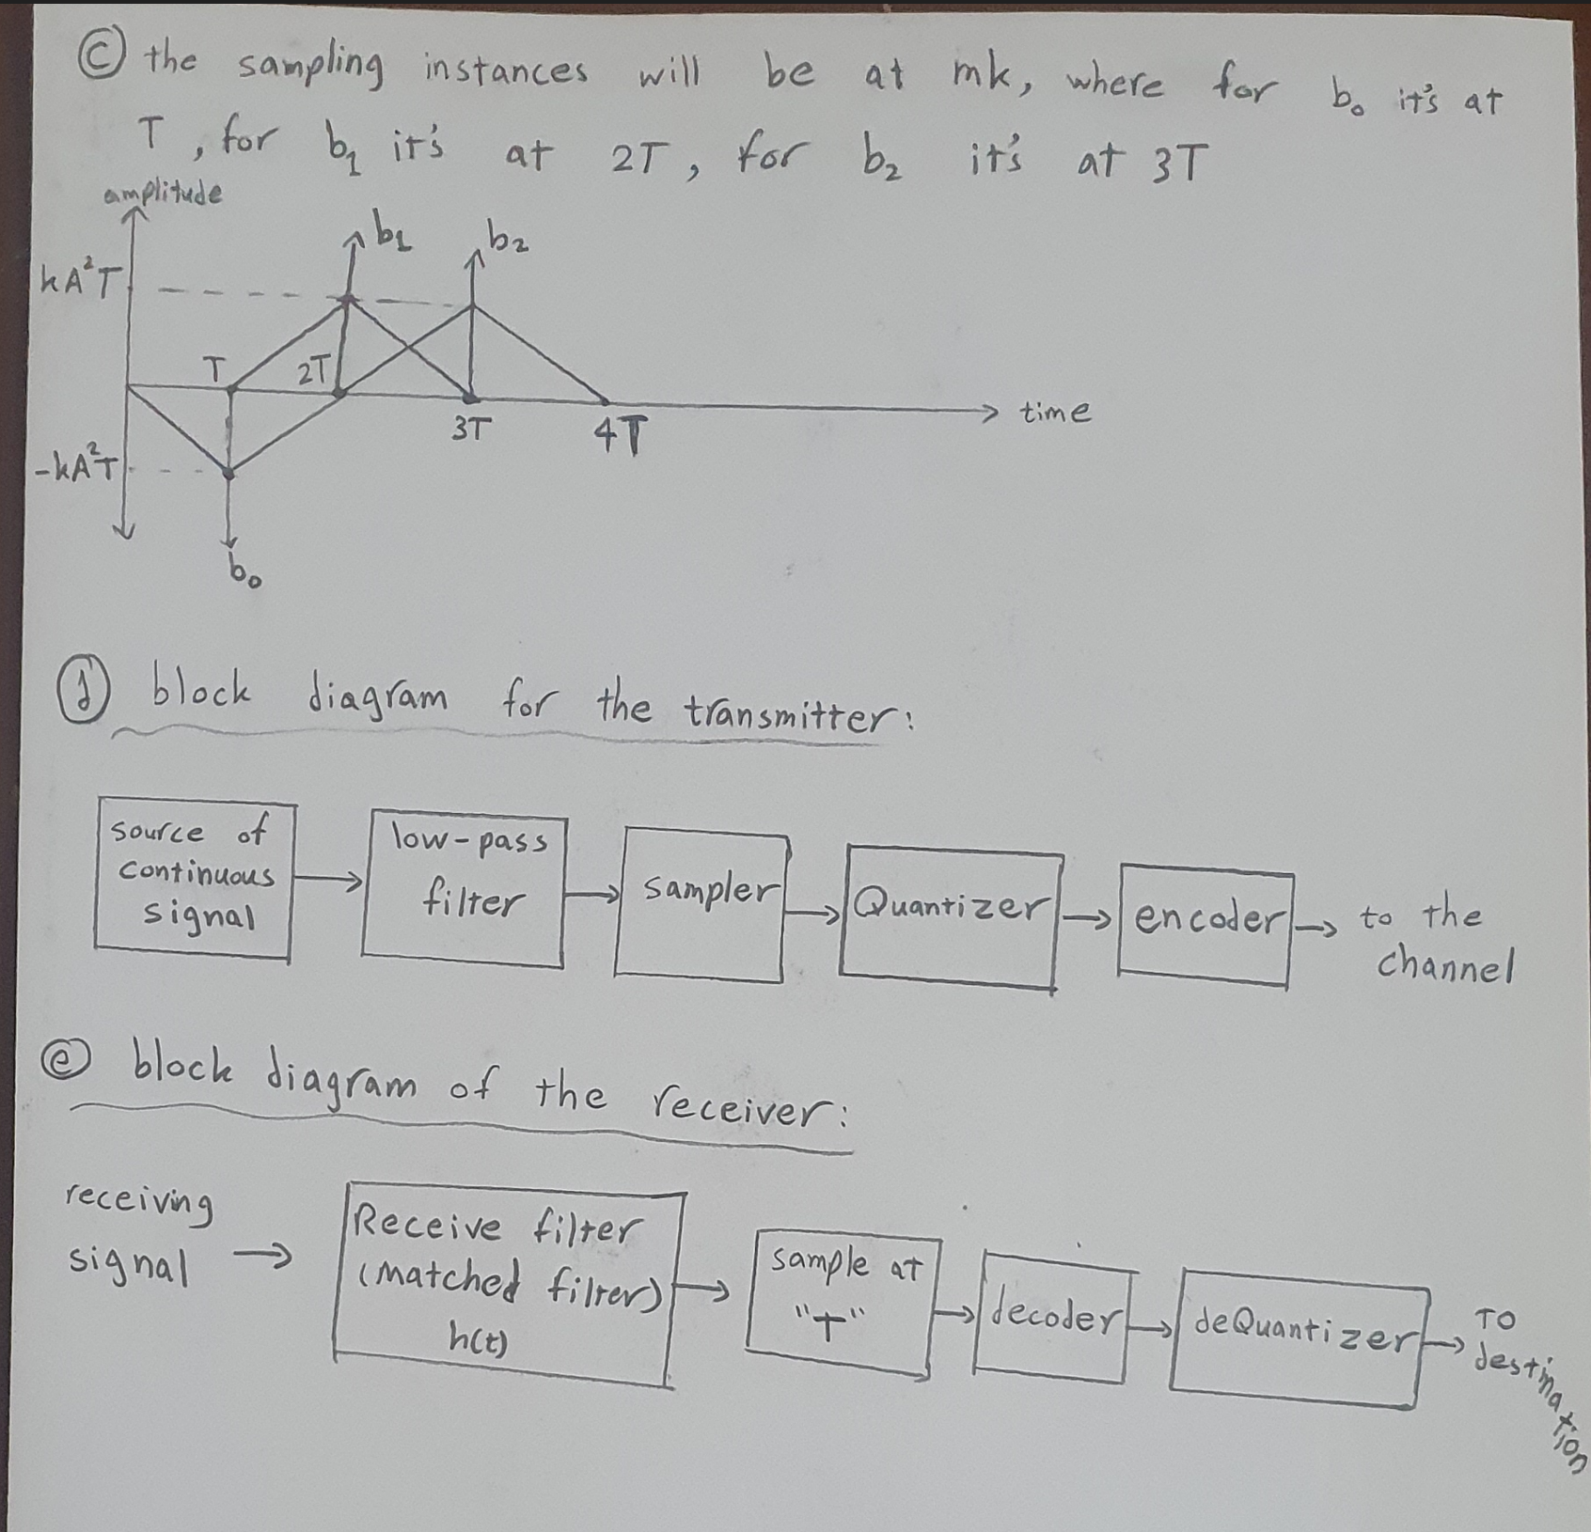 ⓒ the sampling instances will be at mk, where for b₀ it's at
T, for b₁ it's at 2T, for b₂ it's at 3T
amplitude
b₁ b₂
kA²T
T 2T
time
3T 4T
-kA²T
b₀
ⓓ block diagram for the transmitter:
source of
continuous
signal
low-pass
filter
sampler
Quantizer
encoder
to the
channel
ⓔ block diagram of the receiver:
receiving
signal
Receive filter
(matched filter)
h(t)
sample at
"T"
decoder
deQuantizer
TO
destination